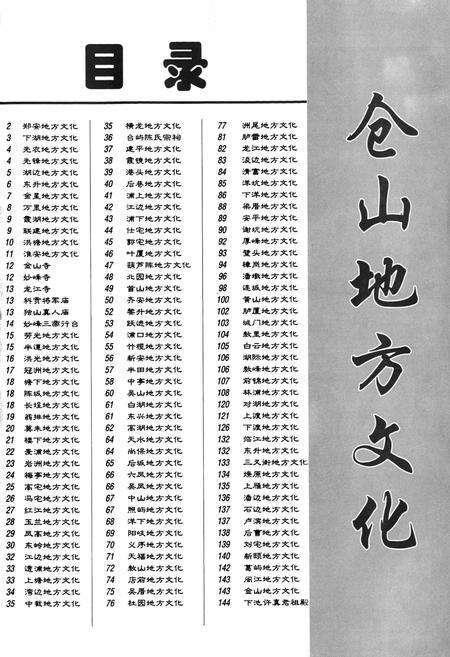 目录
2 郑安地方文化
3 下湖地方文化
4 先农地方文化
4 先锋地方文化
5 湖边地方文化
6 东升地方文化
7 金星地方文化
8 万里地方文化
9 霞湖地方文化
9 联建地方文化
10 洪塘地方文化
11 淮安地方文化
12 金山寺
12 妙峰寺
13 龙江寺
13 科贡将军庙
13 独山真人庙
14 妙峰三帝行台
15 劳光地方文化
15 半道地方文化
16 洪光地方文化
17 冠洲地方文化
18 塘下地方文化
18 陈坂地方文化
18 长埕地方文化
19 首排地方文化
20 葛朱地方文化
21 楼下地方文化
22 麦浦地方文化
23 岩洲地方文化
24 梅亭地方文化
25 高宅地方文化
26 冯宅地方文化
27 红江地方文化
28 玉兰地方文化
29 凤高地方文化
30 东岭地方文化
32 江边地方文化
33 透浦地方文化
33 上塘地方文化
34 湾边地方文化
35 中截地方文化
35 横龙地方文化
36 台屿陈氏宗祠
37 建平地方文化
38 霞镜地方文化
39 港头地方文化
40 后巷地方文化
41 浦上地方文化
42 江边地方文化
43 浦下地方文化
44 仕宅地方文化
45 郭宅地方文化
46 叶厦地方文化
47 葫芦阵地方文化
48 北园地方文化
49 首山地方文化
50 齐安地方文化
52 黎升地方文化
53 跃进地方文化
54 浦口地方文化
56 新安地方文化
57 半田地方文化
58 中亭地方文化
60 吴山地方文化
61 白湖地方文化
61 东兴地方文化
62 高湖地方文化
64 天水地方文化
64 尚保地方文化
65 后坂地方文化
66 六凤地方文化
66 吴凤地方文化
67 中山地方文化
67 照屿地方文化
68 洋下地方文化
69 阳岐地方文化
70 义序地方文化
71 天福地方文化
72 敖山地方文化
74 店前地方文化
75 吴厝地方文化
76 社园地方文化
77 洲尾地方文化
81 胪雷地方文化
82 龙江地方文化
83 浚边地方文化
84 清富地方文化
85 洋坑地方文化
86 下洋地方文化
88 梁厝地方文化
89 安平地方文化
90 谢坑地方文化
92 厚峰地方文化
93 壁头地方文化
94 樟岚地方文化
96 潘墩地方文化
98 连坂地方文化
100 黄山地方文化
102 胪厦地方文化
103 城门地方文化
104 敖里地方文化
105 白云地方文化
106 湖际地方文化
106 敖峰地方文化
107 前锦地方文化
108 林浦地方文化
120 对湖地方文化
121 上渡地方文化
126 下渡地方文化
132 临江地方文化
132 东升地方文化
133 三叉街地方文化
134 燎原地方文化
135 上雁地方文化
136 潘边地方文化
137 石边地方文化
137 卢滨地方文化
138 后曹地方文化
139 刘宅地方文化
140 新颐地方文化
142 葛屿地方文化
143 闽江地方文化
143 金山地方文化
144 下池许真君祖殿
仓山地方文化